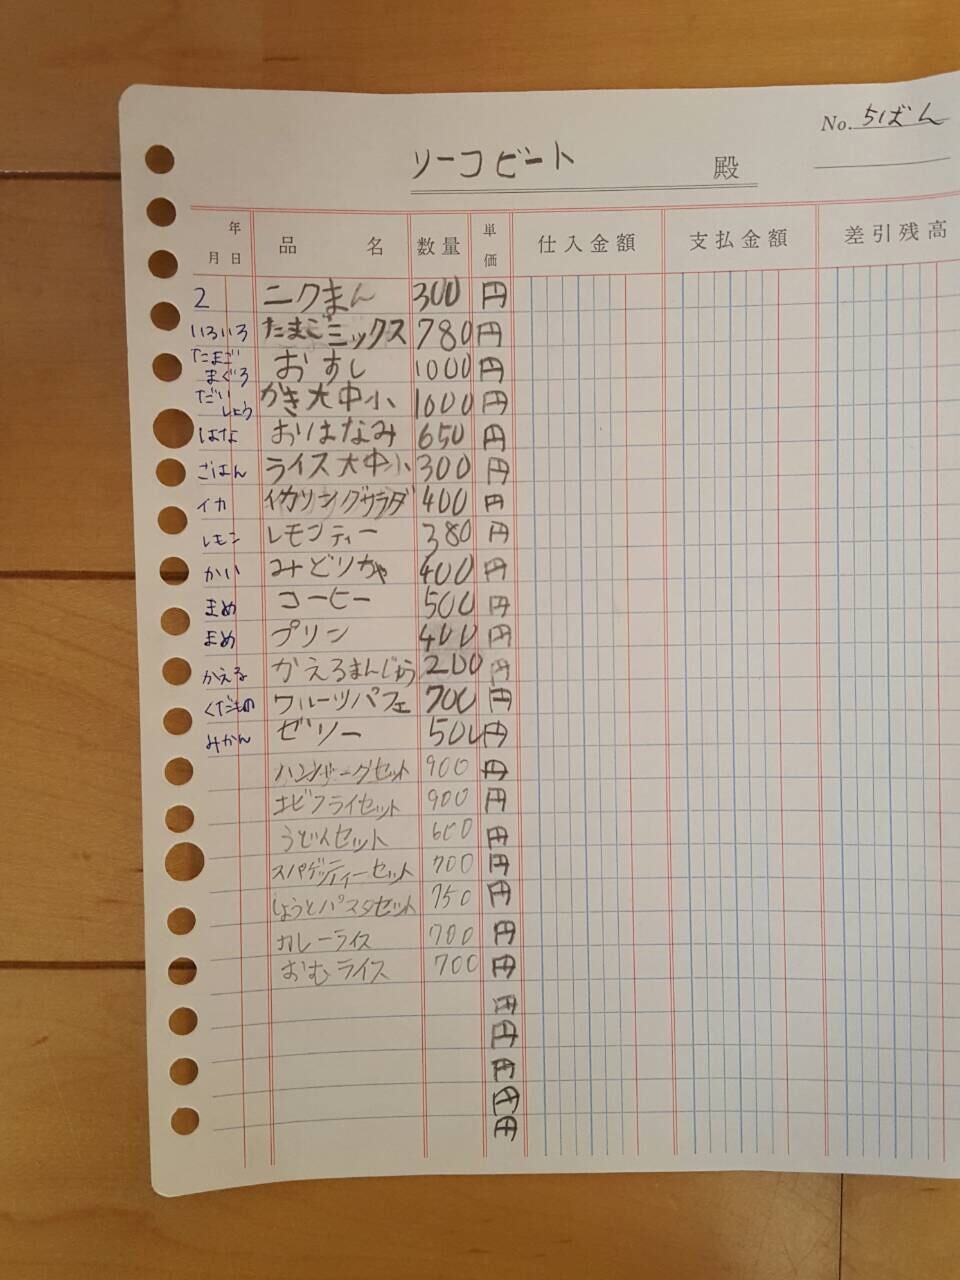 No. 5ばん
ソーコビート 殿
年 月 日 品 名 数量 単価 仕入金額 支払金額 差引残高
2 ニクまん 300 円
いろいろ たまごミックス 780 円
たまご まぐろ おすし 1000 円
だい しょう かき大中小 1000 円
はな おりはなみ 650 円
ごはん ライス大中小 300 円
イカ イカリングサラダ 400 円
レモン レモンティー 380 円
かい みどりちゃ 400 円
まめ コーヒー 500 円
まめ プリン 400 円
かえる かえるまんじゅう 200 円
くだもの フルーツパフェ 700 円
みかん ゼリー 500 円
ハンバーグセット 900 円
エビフライセット 900 円
うどんセット 600 円
スパゲッティーセット 700 円
しょうとパスタセット 750 円
カレーライス 700 円
おむライス 700 円
円
円
円
円
円